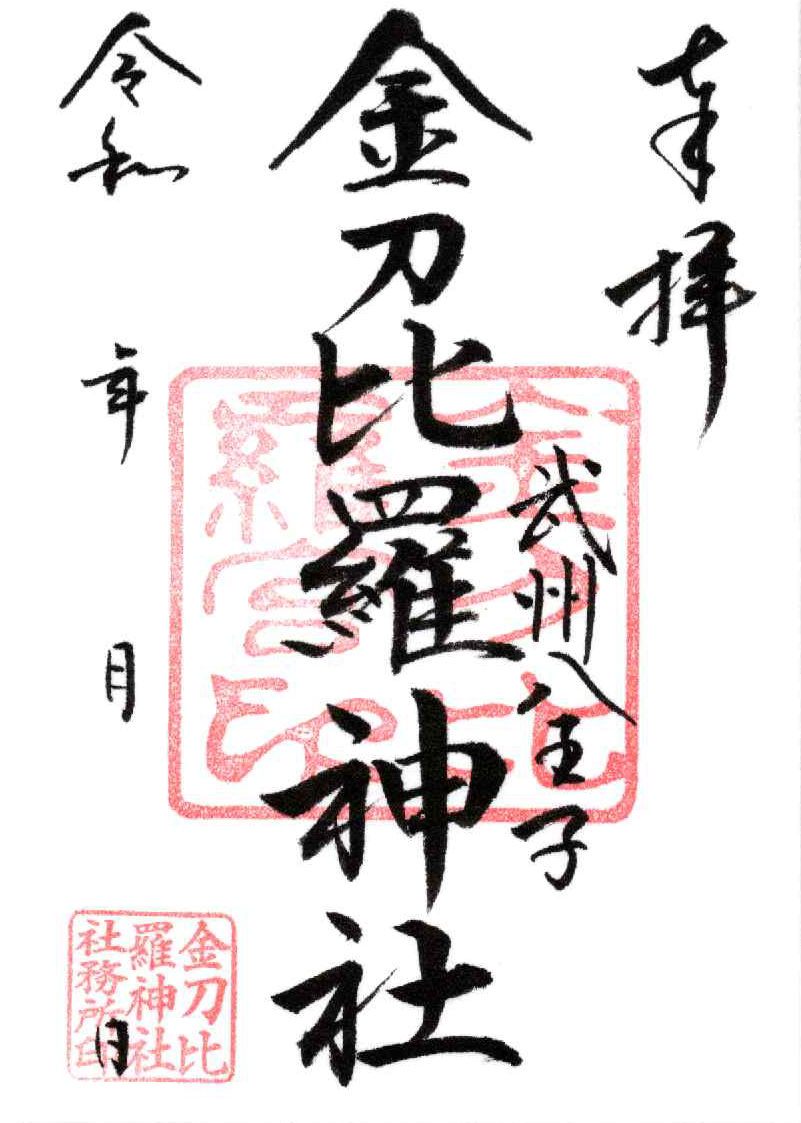 奉拝
武州八王子
金刀比羅神社
令和 年 月 日
金刀比
羅神社
社務所印